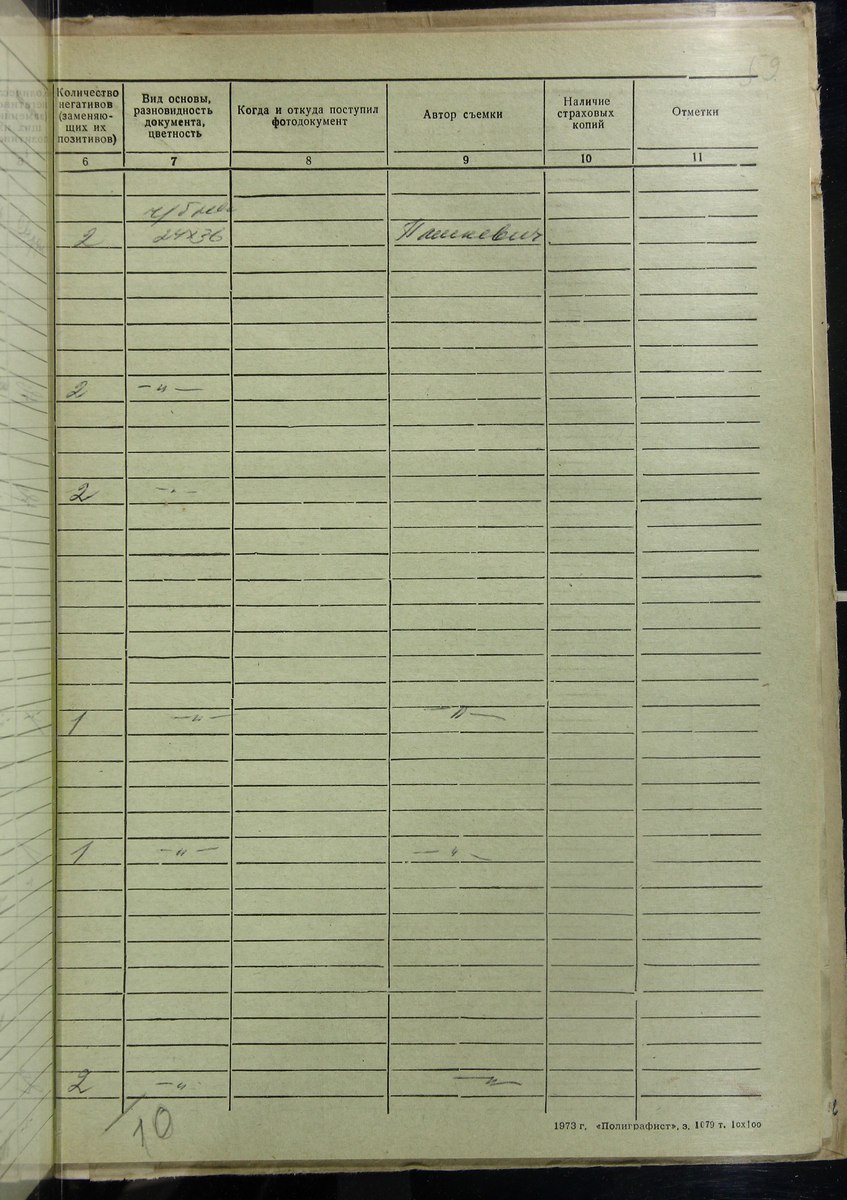 Количество
негативов
(заменяю-
щих их
позитивов)
Вид основы,
разновидность
документа,
цветность
Когда и откуда поступил
фотодокумент
Автор съемки
Наличие
страховых
копий
Отметки
6 7 8 9 10 11
2 24х36 Пашкевич
2 -"-
2 -"-
1 -"- -"-
1 -"- -"-
2 -"- -"-
10
1973 г. «Полиграфист», з. 1079 т. 10х100